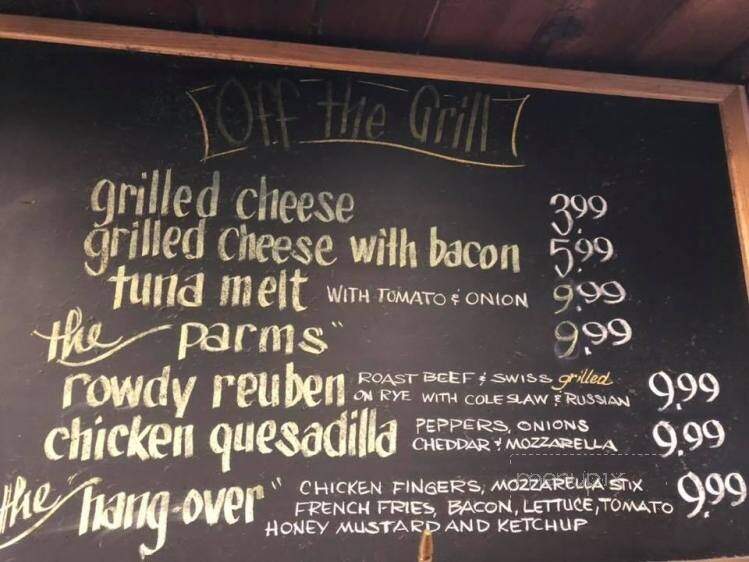 Off the Grill
grilled cheese 3.99
grilled cheese with bacon 5.99
tuna melt WITH TOMATO & ONION 9.99
the parms" 9.99
rowdy reuben ROAST BEEF & SWISS grilled
ON RYE WITH COLE SLAW & RUSSIAN 9.99
chicken quesadilla PEPPERS, ONIONS
CHEDDAR & MOZZARELLA 9.99
menupix
the "hang-over" CHICKEN FINGERS, MOZZARELLA STIX
FRENCH FRIES, BACON, LETTUCE, TOMATO 9.99
HONEY MUSTARD AND KETCHUP